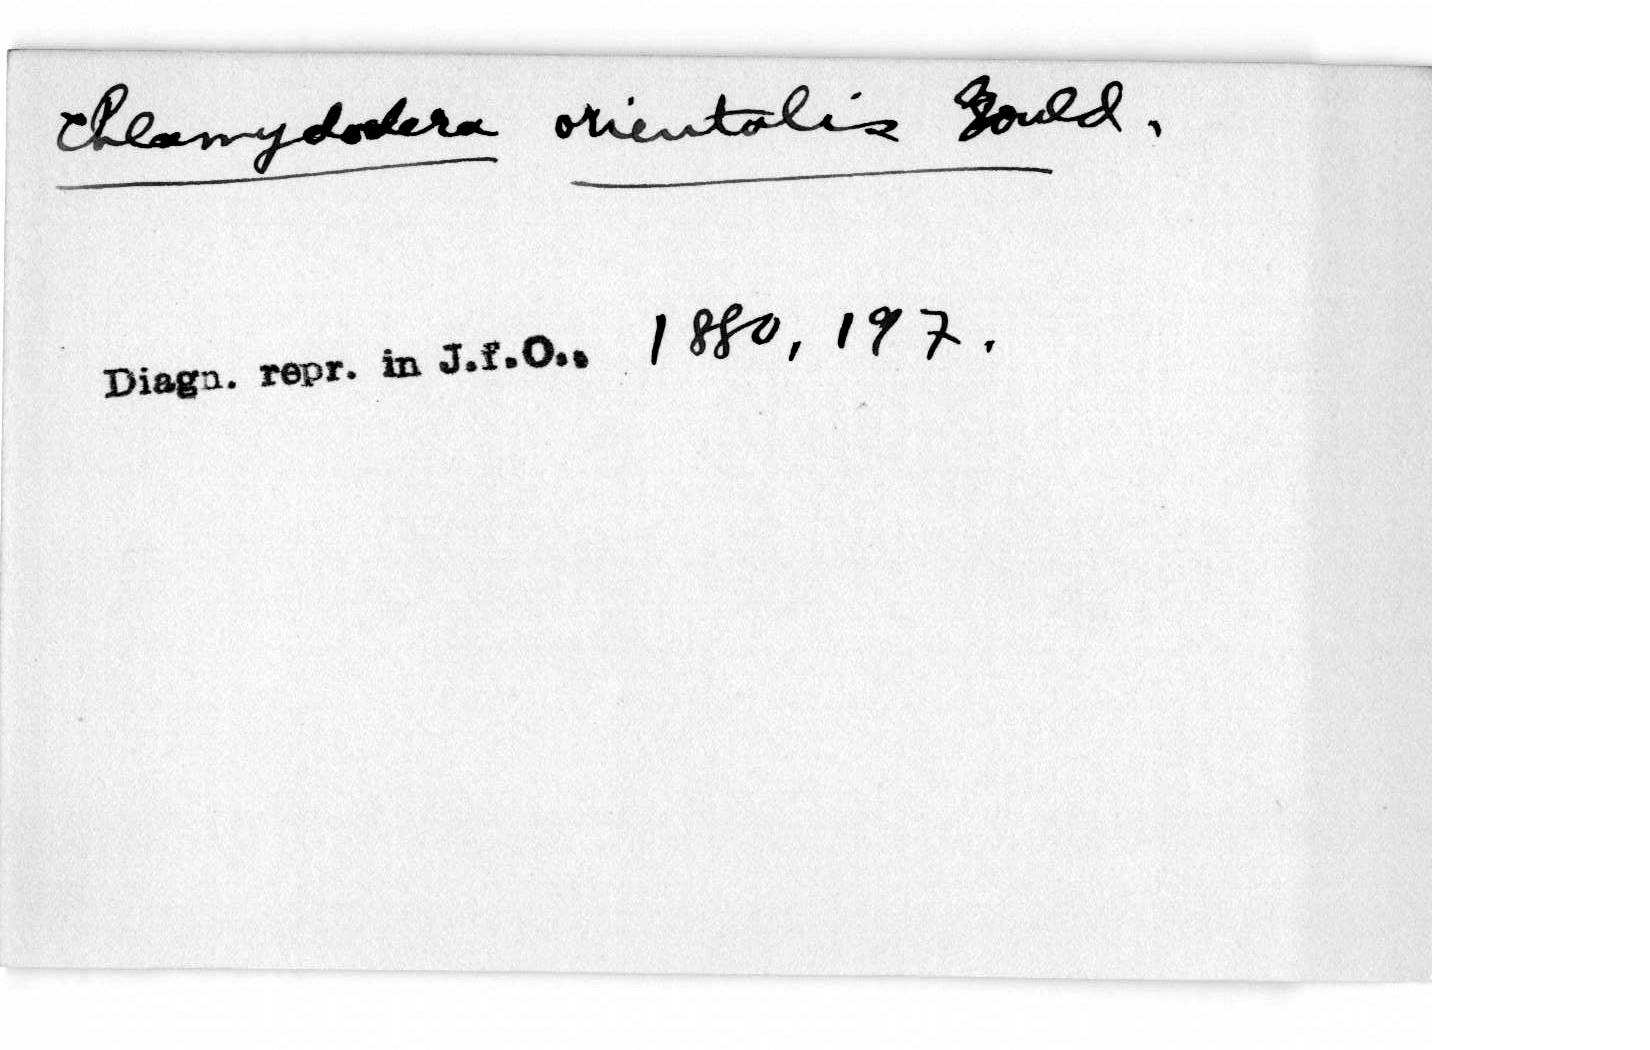 Chlamydodera orientalis Gould.
Diagn. repr. in J.f.O.. 1880, 197.